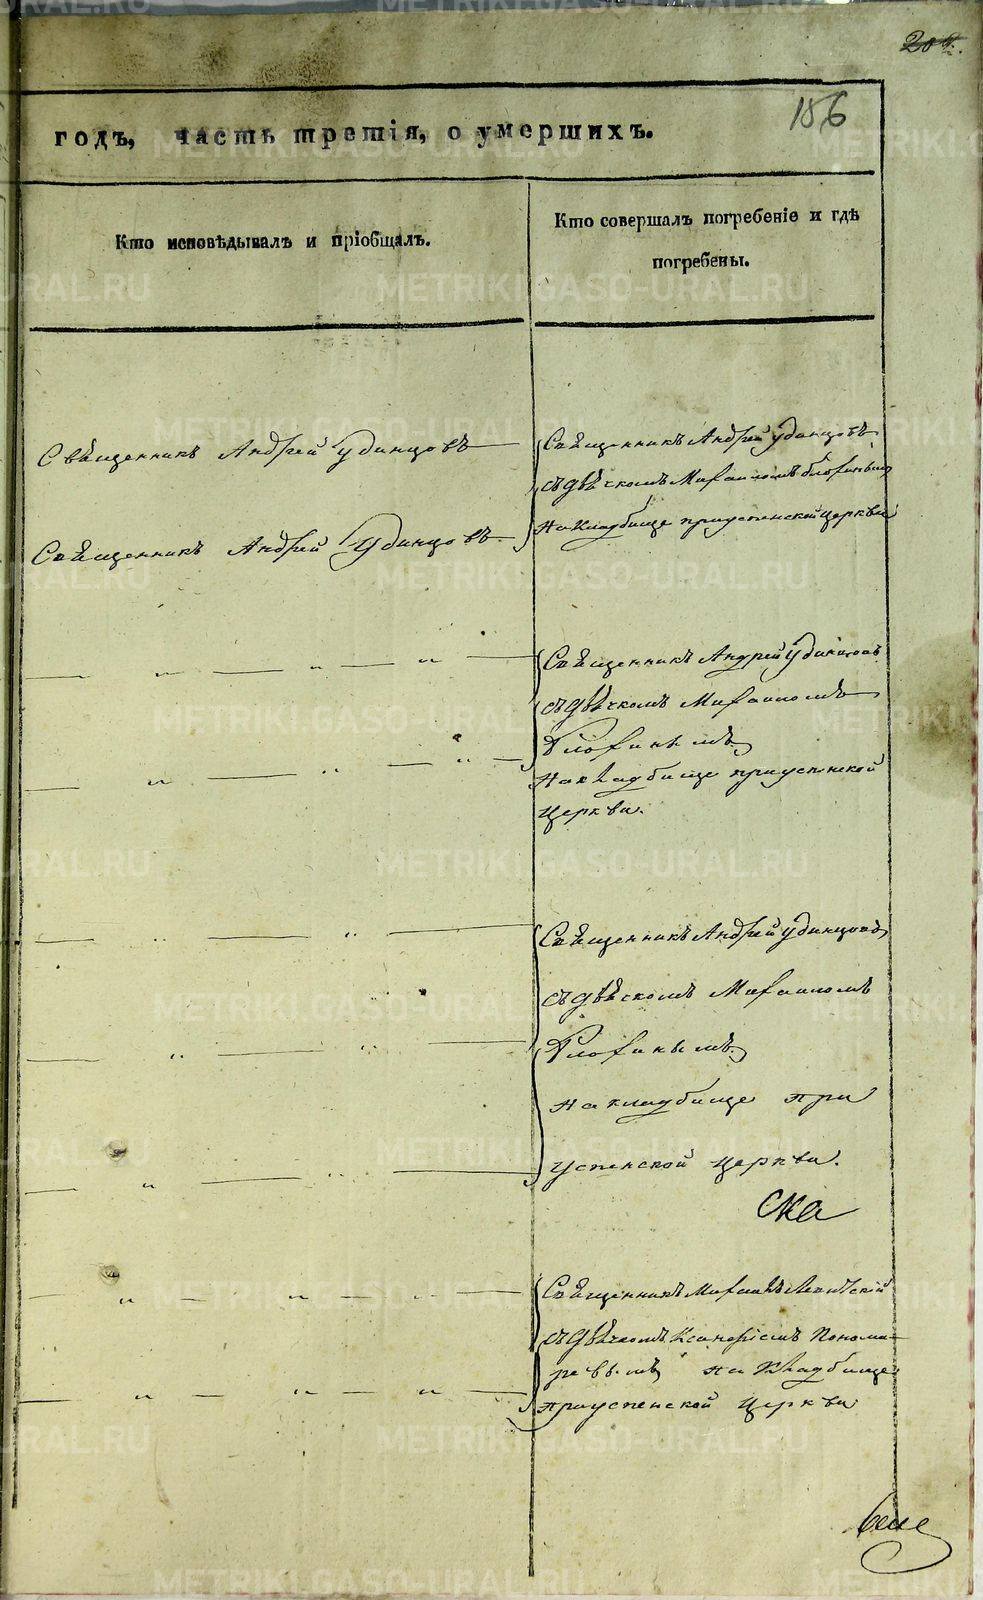 204.
156
годъ, часть третія, о умершихъ.
Кто исповѣдывалъ и пріобщалъ.
Кто совершалъ погребеніе и гдѣ
погребены.
Священникъ Андрей Удинцовъ
Священникъ Андрей Удинцовъ
Священникъ Андрей Удинцовъ
съ дьячкомъ Михаиломъ
на кладбище при успенской церкви
— „ — „ — „ —
— „ — „ — „ —
Священникъ Андрей Удинцовъ
съ дьячкомъ Михаиломъ
на кладбище при успенской
церкви.
— „ — „ —
— „ — „ —
— „ — „ —
Священникъ Андрей Удинцовъ
съ дьячкомъ Михаиломъ
на кладбище при
успенской церкви.
ска
— „ — „ — „ —
— „ — „ — „ —
Священникъ Михаилъ
съ дьячкомъ Понома-
ревымъ на кладбище
при успенской церкви
METRIKI.GASO-URAL.RU